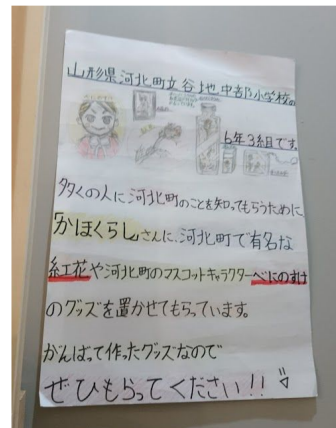 山形県河北町立谷地中部小学校の
6年3組です。
多くの人に河北町のことを知ってもらうために
「かほくらし」さんに、河北町で有名な
紅花や河北町のマスコットキャラクターべにのすけ
のグッズを置かせてもらっています。
がんばって作ったグッズなので
ぜひもらってください!!